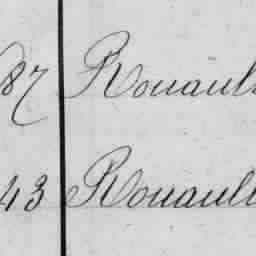 87 Rouault
43 Rouault